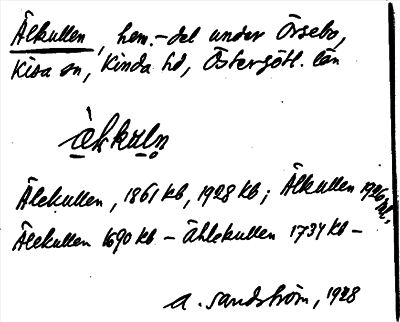 Älkullen, hem.-del under Örsebo,
Kisa sn, Kinda hd, Östergötl. län
ä̀kkulṇ
Älekullen, 1861 kb, 1928 kb; Älkullen 1926
Älekullen 1690 kb – Ählekullen 1734 kb –
A. Sandström, 1928